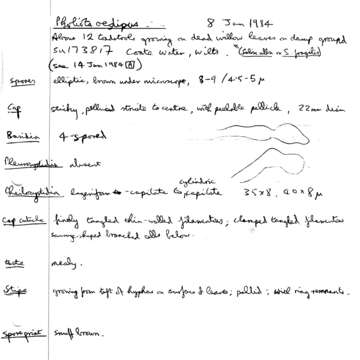 Pholiota oedipus 8 Jan 1984
About 12 toadstools growing on dead willow leaves on damp ground
SU 173817 Coate Water, Wilts. (Salix alba or S. fragilis)
(see 14 Jan 1984 [A])
Spores elliptic, brown under microscope, 8-9 / 4.5-5 µ
Cap sticky, pellucid striate to centre, with peelable pellicle, 22mm diam
Basidia 4-spored
Pleurocystidia absent
cylindric
Cheilocystidia lageniform - capitate to capitate 35x8, 40x8 µ
Cap cuticle finely tangled thin-walled filamentous; clamped tangled filamentous
branched cells below.
taste mealy.
Stipe growing from tuft of hyphae on surface of leaves; pallid; with ring remnants.
Spore print snuff brown.